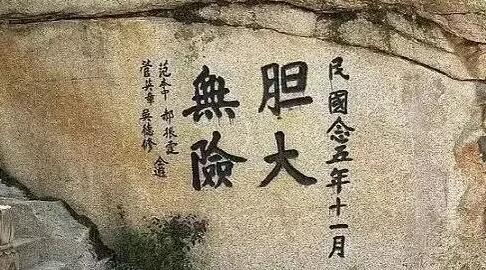 民國念五年十一月
胆大
無險
范本中 郝振霆
菅英華 吳德修 仝遊